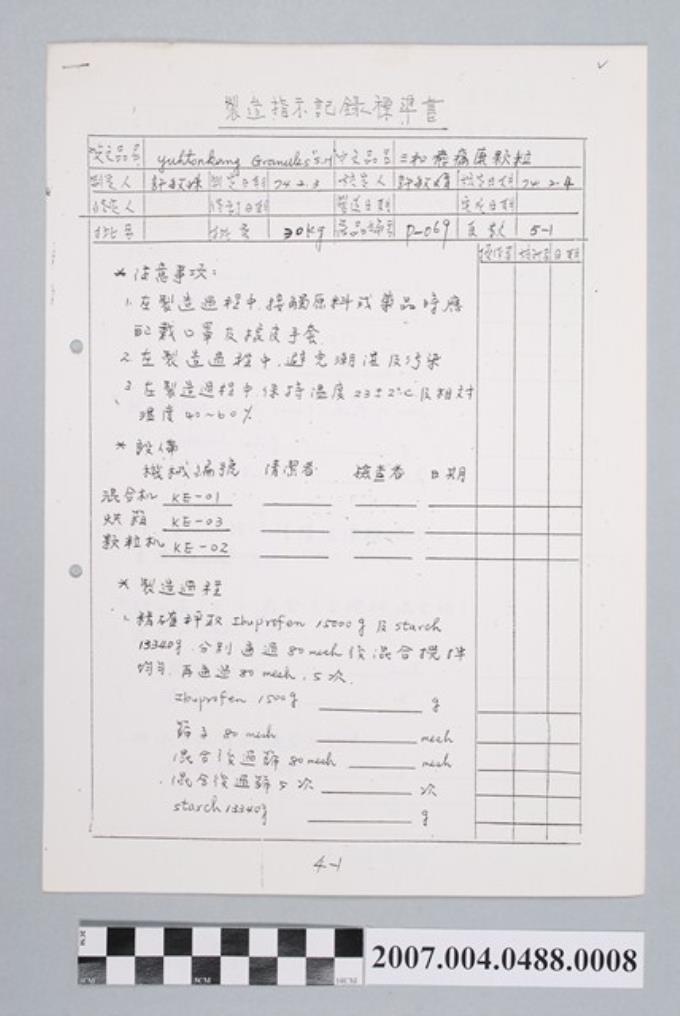 製造指示記錄標準書
英文品名 Yuhtonkang Granules "S.H" 中文品名 三和癒痛康顆粒
制定人 制定日期 74.2.3 核定人 核定日期 74.2.4
修定人 修訂日期 製造日期 完成日期
批號 批量 30kg 產品編號 P-069 頁數 5-1
操作者 核對者 日期
* 注意事項:
1. 在製造過程中,接觸原料或藥品時應
配戴口罩及橡皮手套
2. 在製造過程中,避免潮溼及污染
3. 在製造過程中,保持溫度 23±2°C 及相對
溼度 40~60%
* 設備
機械編號 清潔者 檢查者 日期
混合机 KE-01
烘箱 KE-03
顆粒机 KE-02
* 製造過程
1. 精確秤取 Ibuprofen 15000g 及 starch
13340g,分別通過 80 mesh 後混合攪拌
均勻,再通過 80 mesh,5次.
Ibuprofen 1500g g
篩子 80 mesh mesh
混合後過篩 80 mesh mesh
混合後過篩 5 次 次
starch 13340g g
4-1
2007.004.0488.0008